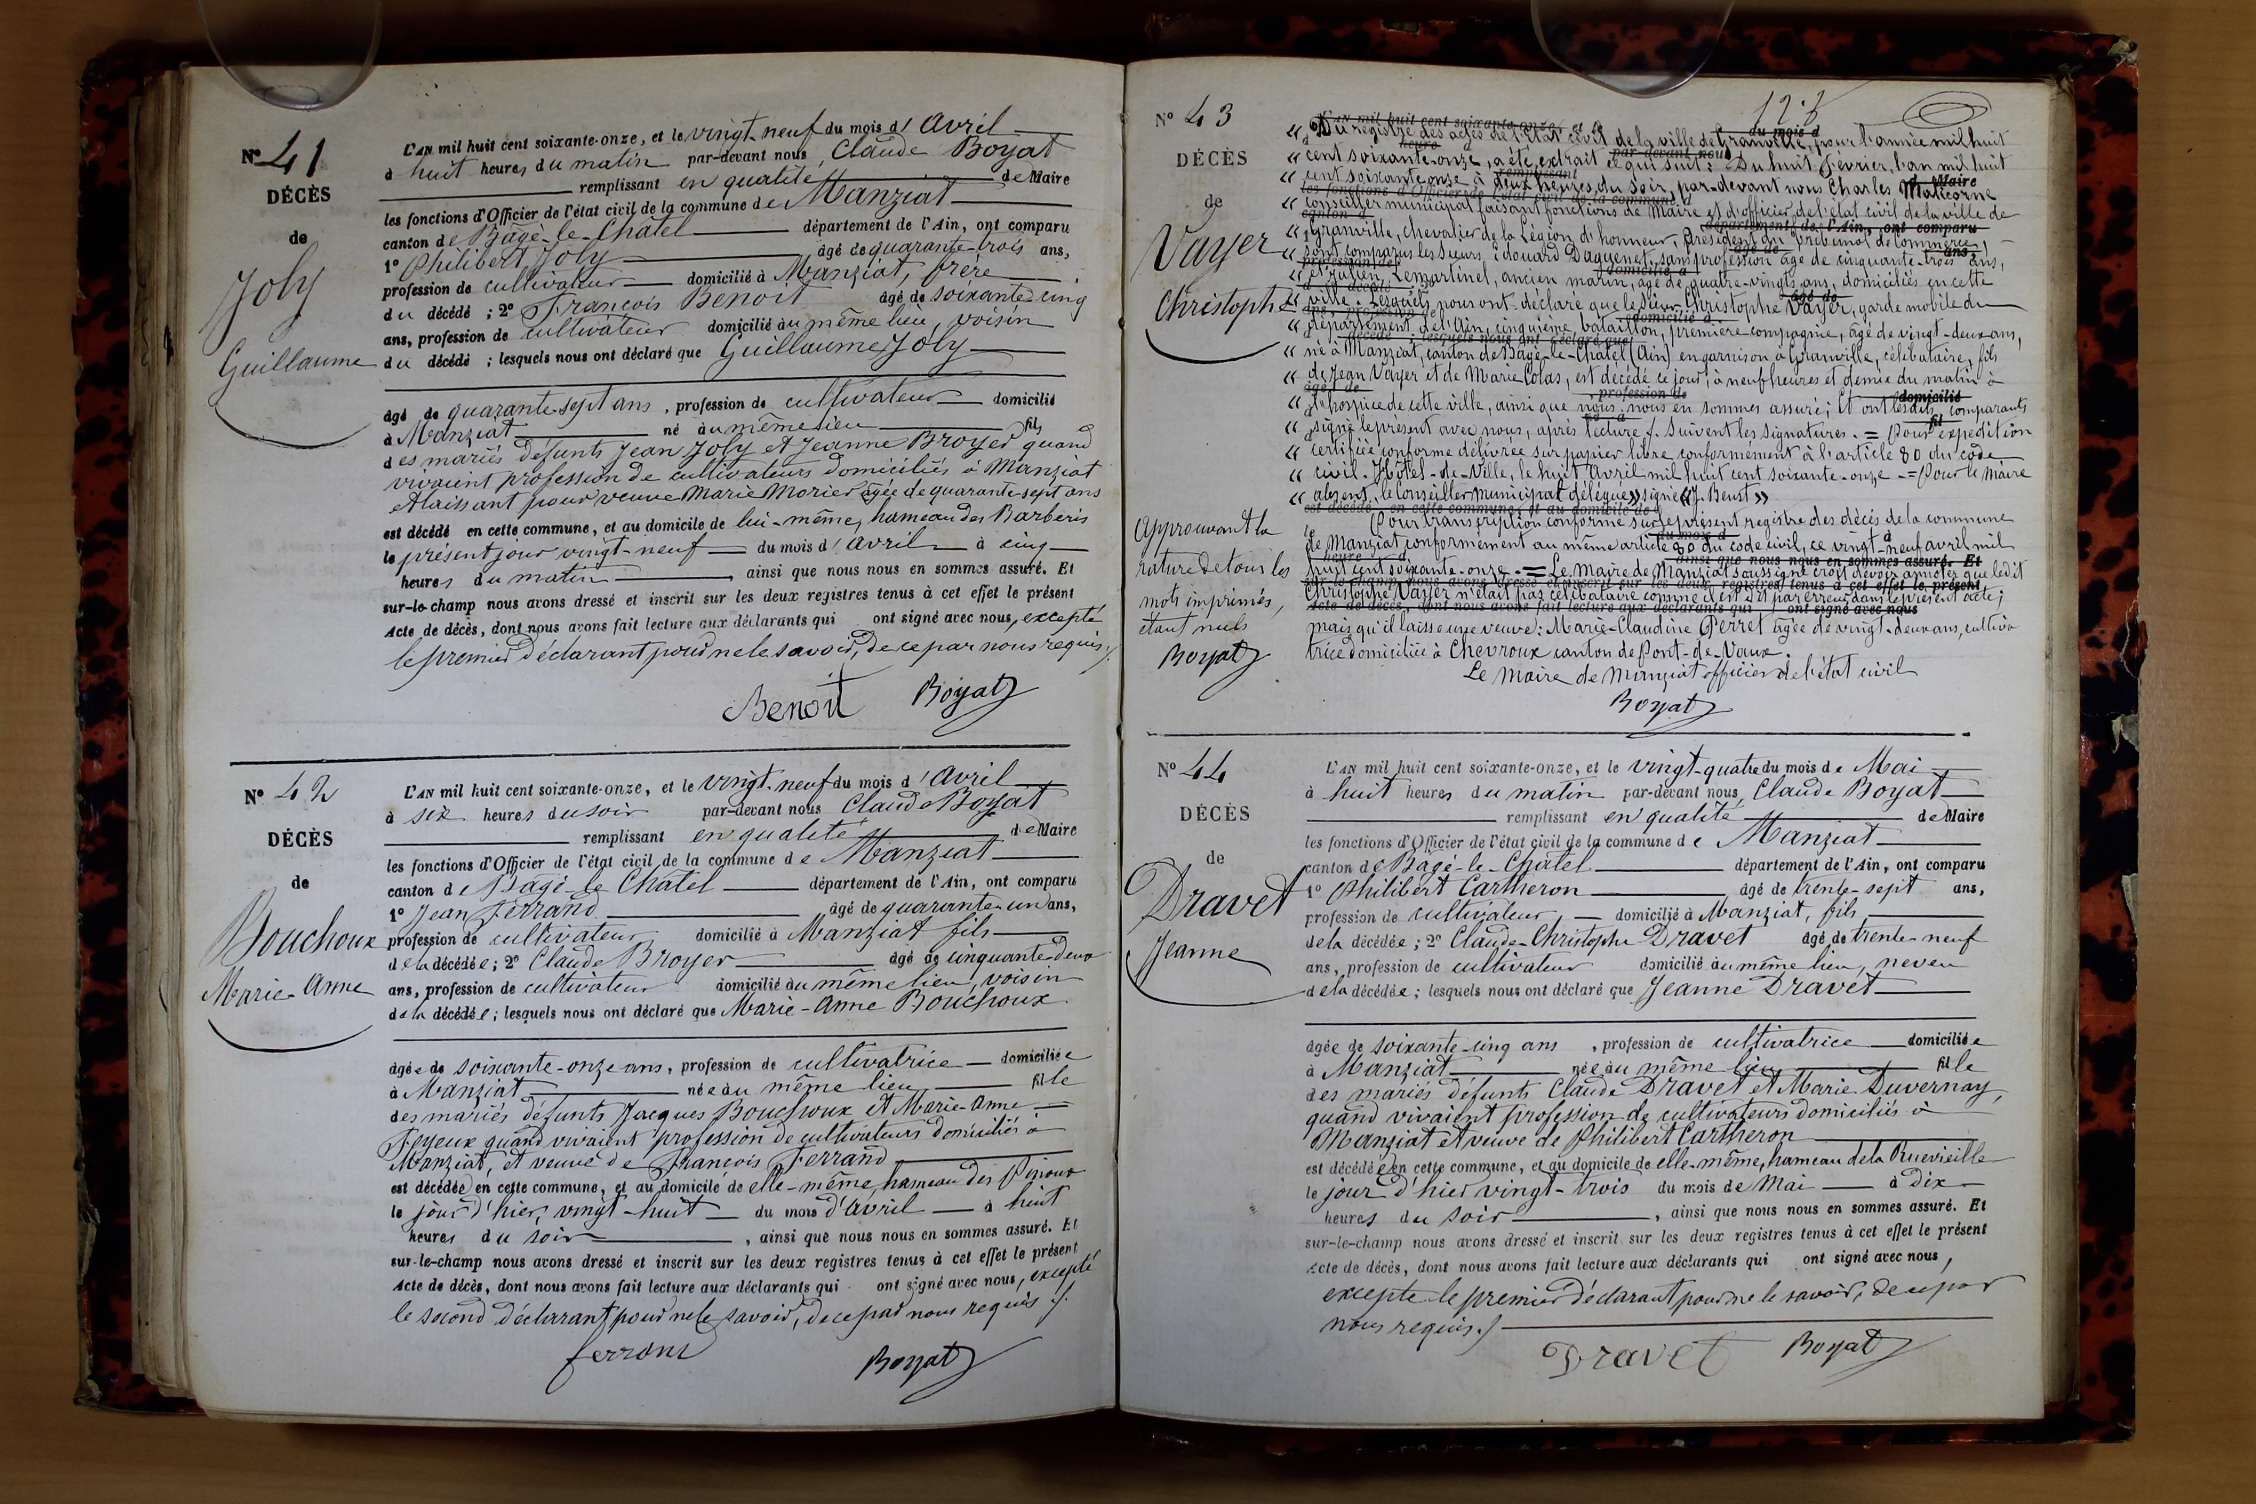 N° 41
DÉCÈS
de
Joly
Guillaume
L'AN mil huit cent soixante-onze, et le vingt-neuf du mois d'Avril
à huit heures du matin par-devant nous, Claude Boyat
remplissant en qualité de Maire
les fonctions d'Officier de l'état civil de la commune de Manziat
canton de Bâgé-le-Châtel département de l'Ain, ont comparu
1° Philibert Joly âgé de quarante-trois ans,
profession de cultivateur domicilié à Manziat, frère
du décédé ; 2° François Benoit âgé de soixante-cinq
ans, profession de cultivateur domicilié au même lieu, voisin
du décédé ; lesquels nous ont déclaré que Guillaume Joly
âgé de quarante-sept ans, profession de cultivateur domicilié
à Manziat né au même lieu fils
des mariés défunts Jean Joly et Jeanne Broyer quand
vivaient profession de cultivateurs domiciliés à Manziat
et laissant pour veuve Marie Morier âgée de quarante-sept ans
est décédé en cette commune, et au domicile de lui-même, hameau des Barberis
le présent jour vingt-neuf du mois d'Avril à cinq
heures du matin, ainsi que nous nous en sommes assuré. Et
sur-le-champ nous avons dressé et inscrit sur les deux registres tenus à cet effet le présent
Acte de décès, dont nous avons fait lecture aux déclarants qui ont signé avec nous, excepté
le premier déclarant pour ne le savoir, de ce par nous requis ./.
Benoit Boyat
N° 42
DÉCÈS
de
Bouchoux
Marie-Anne
L'AN mil huit cent soixante-onze, et le vingt-neuf du mois d'Avril
à six heures du soir par-devant nous Claude Boyat
remplissant en qualité de Maire
les fonctions d'Officier de l'état civil de la commune de Manziat
canton de Bâgé-le-Châtel département de l'Ain, ont comparu
1° Jean Ferrand âgé de quarante-un ans,
profession de cultivateur domicilié à Manziat fils
de la décédée ; 2° Claude Broyer âgé de cinquante-deux
ans, profession de cultivateur domicilié au même lieu, voisin
de la décédée ; lesquels nous ont déclaré que Marie-Anne Bouchoux
âgée de soixante-onze ans, profession de cultivatrice domiciliée
à Manziat née au même lieu fille
des mariés défunts Jacques Bouchoux et Marie-Anne
Feyeux quand vivaient profession de cultivateurs domiciliés à
Manziat, et veuve de François Ferrand
est décédée en cette commune, et au domicile de elle-même, hameau des Pinoux
le jour d'hier, vingt-huit du mois d'Avril à huit
heures du soir, ainsi que nous nous en sommes assuré. Et
sur-le-champ nous avons dressé et inscrit sur les deux registres tenus à cet effet le présent
Acte de décès, dont nous avons fait lecture aux déclarants qui ont signé avec nous, excepté
le second déclarant pour ne le savoir, de ce par nous requis ./.
ferrand Boyat
N° 43
DÉCÈS
de
Vayer
Christophe
Approuvant la
rature de tous les
mots imprimés,
étant nuls
Boyat
« Du registre des actes de l'état civil de la ville de Granville, pour l'année mil huit
« cent soixante-onze, a été extrait ce qui suit : Du huit Février, l'an mil huit
« cent soixante-onze à deux heures du soir, par-devant nous Charles Malicorne
« conseiller municipal faisant fonctions de Maire et d'officier de l'état civil de la ville de
« Granville, chevalier de la Légion d'honneur, Président du Tribunal de Commerce,
« sont comparus les Sieurs, Édouard Daguenet, sans profession âgé de cinquante-trois ans,
« et Julien Lemartinel, ancien marin, âgé de quatre-vingts ans, domiciliés en cette
« ville. Lesquels nous ont déclaré que le sieur Christophe Vayer, garde mobile du
« département de l'Ain, cinquième bataillon, première compagnie, âgé de vingt-deux ans,
« né à Manziat, canton de Bagé-le-Chatel (Ain) en garnison à Granville, célibataire, fils
« de Jean Vayer et de Marie Colas, est décédé ce jour, à neuf heures et demie du matin à
« l'hospice de cette ville, ainsi que nous nous en sommes assuré ; Et ont lesdits comparants
« signé le présent avec nous, après lecture /. Suivent les signatures. = Pour expédition
« certifiée conforme délivrée sur papier libre conformément à l'article 80 du code
« civil. Hôtel-de-Ville, le huit Avril mil huit cent soixante-onze = Pour le Maire
« absent, le Conseiller municipal délégué » signé « J. Beust »
Pour transcription conforme sur le présent registre des décès de la commune
de Manziat conformément au même article 80 du code civil, ce vingt-neuf avril mil
huit cent soixante-onze. = Le Maire de Manziat soussigné croit devoir annoter que ledit
Christophe Vayer n'était pas célibataire comme il est dit par erreur dans le présent acte ;
mais qu'il laisse une veuve : Marie-Claudine Perret âgée de vingt-deux ans, cultiva
trice domiciliée à Chevroux canton de Pont-de-Vaux.
Le Maire de Manziat officier de l'état civil
Boyat
N° 44
DÉCÈS
de
Dravet
Jeanne
L'AN mil huit cent soixante-onze, et le vingt-quatre du mois de Mai
à huit heures du matin par-devant nous, Claude Boyat
remplissant en qualité de Maire
les fonctions d'Officier de l'état civil de la commune de Manziat
canton de Bâgé-le-Châtel département de l'Ain, ont comparu
1° Philibert Cartheron âgé de trente-sept ans,
profession de cultivateur, domicilié à Manziat, fils
de la décédée ; 2° Claude-Christophe Dravet âgé de trente-neuf
ans, profession de cultivateur domicilié au même lieu, neveu
de la décédée ; lesquels nous ont déclaré que Jeanne Dravet
âgée de soixante-cinq ans, profession de cultivatrice domiciliée
à Manziat née au même lieu fille
des mariés défunts Claude Dravet et Marie Duvernay,
quand vivaient profession de cultivateurs domiciliés à
Manziat et veuve de Philibert Cartheron
est décédée en cette commune, et au domicile de elle-même, hameau de la Ruevieille
le jour d'hier vingt-trois du mois de Mai à dix
heures du soir, ainsi que nous nous en sommes assuré. Et
sur-le-champ nous avons dressé et inscrit sur les deux registres tenus à cet effet le présent
Acte de décès, dont nous avons fait lecture aux déclarants qui ont signé avec nous,
excepté le premier déclarant pour ne le savoir, de ce par
nous requis ./.
Dravet Boyat